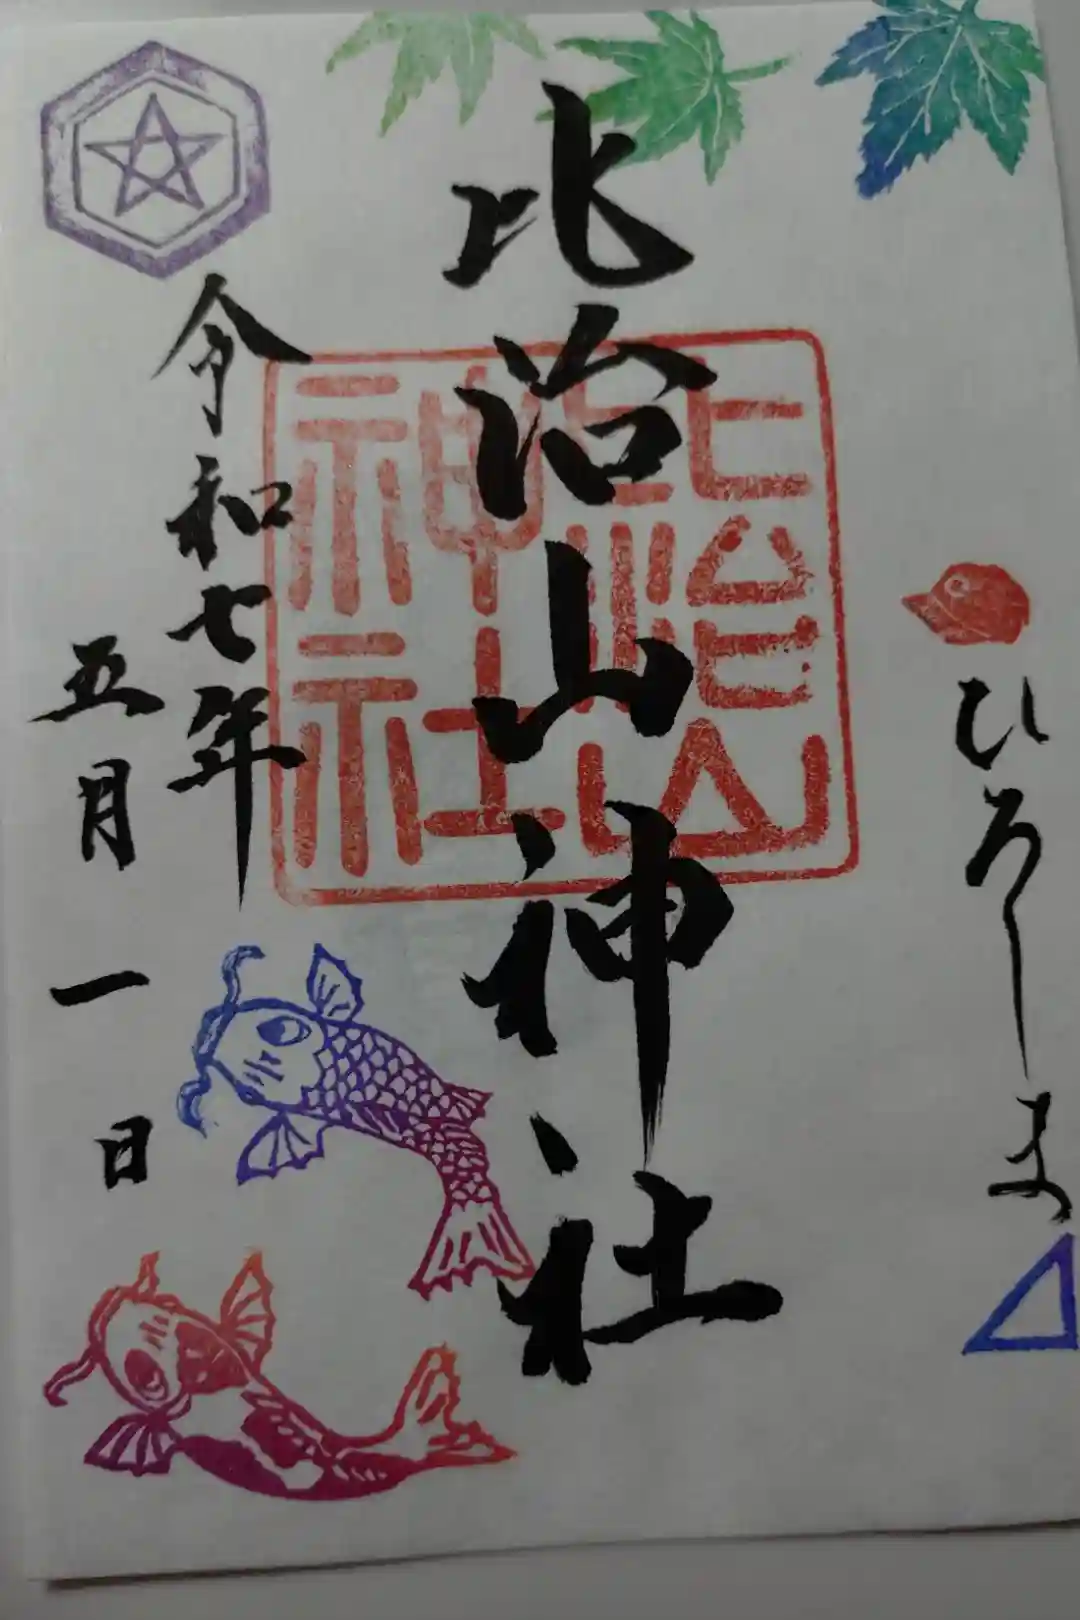 ひろしま
比治山神社
比治山神社
令和七年
五月一日